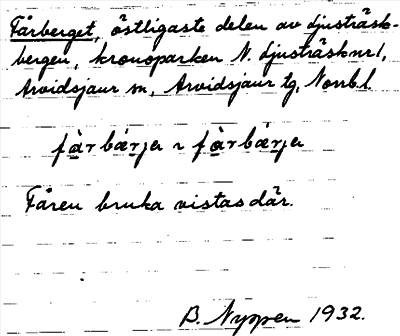 Fårberget, östligaste delen av Ljusträsk-
bergen, kronoparken N. Ljusträsk nr 1,
Arvidsjaur sn, Arvidsjaur tg, Norrb. l.
fàrbárja ɿ fàrbárja
Fåren bruka vistas där.
B. Nyppen 1932.